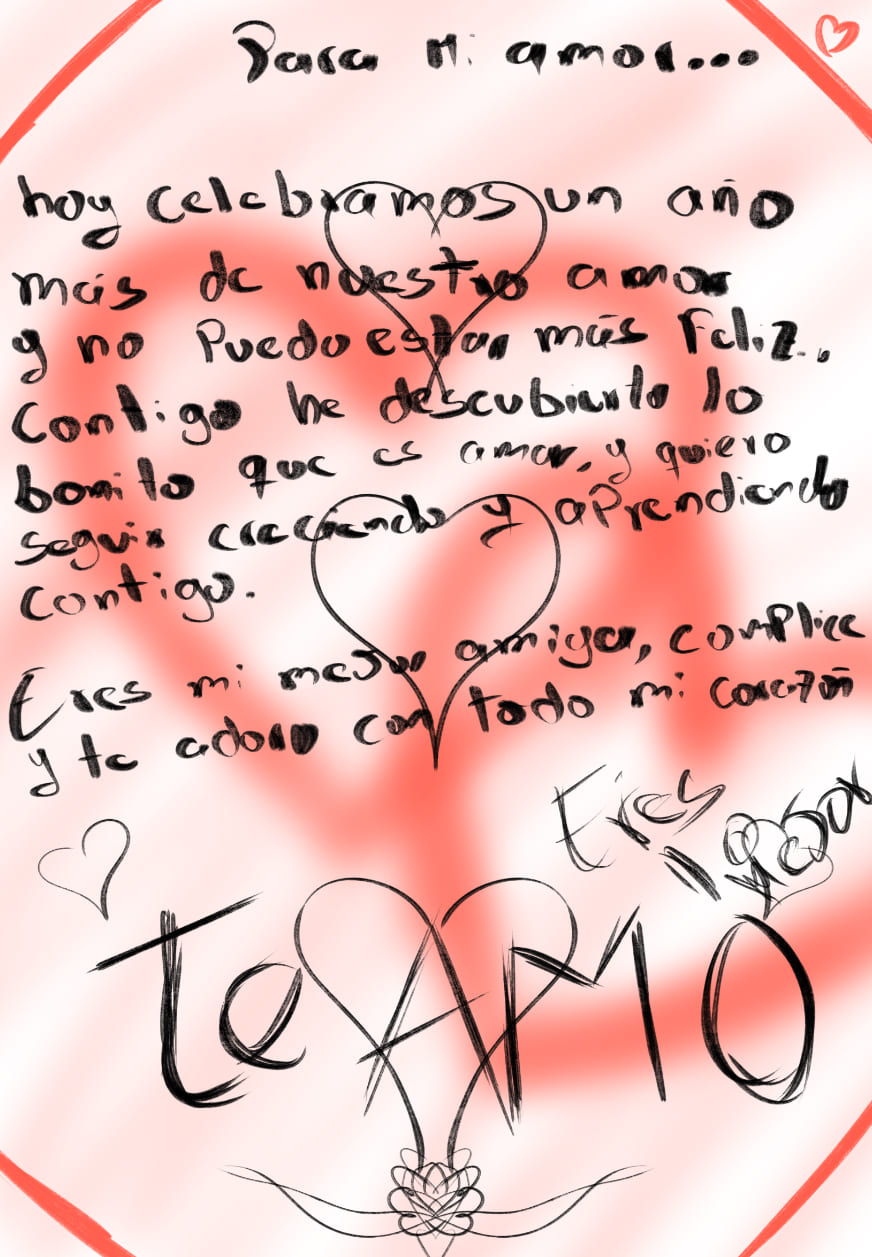 Para mi amor...
hoy celebramos un año
más de nuestro amor
y no Puedo estar más feliz..
Contigo he descubierto lo
bonito que es amar, y quiero
seguir creciendo y aprendiendo
contigo.
Eres mi mejor amiga, complice
y te adoro con todo mi corazón
Eres
te AMO